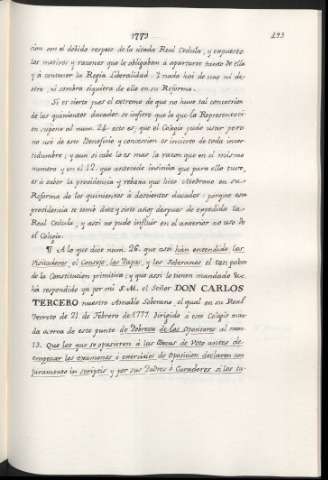 1779
233
cion con el debido respeto de la citada Real Cedula; y expuesto
los motivos y razones que le obligaban á apartarse tanto de ella
y á contener la Regia Liberalidad. Y nada hai de uno ni de
otro, ni sombra siquiera de ello en su Reforma.
Si es cierto pues el extremo de que no huvo tal concesion
de los quinientos ducados se infiere que lo que la Representaci
on supone al num. 24. esto es; que el Colegio pudo usar pero
no usó de este Beneficio y concesion es incierto de toda incer-
tidumbre; y aun si cabe lo es mas la razon que en el mismo
numero y en el 12. que antecede insinúa que para ello tuvo,
es á saber la providencia y rebaxa que hizo Medrano en su
Reforma de los quinientos á doscientos ducados: porque esta
providencia se tomó diez y siete años despues de expedida la
Real Cedula, y assi no pudo influir en el anterior no uso de
el Colegio.
¶ A lo que dice num. 26. que assi han entendido los
Visitadores, el Consejo, los Papas, y los Soberanos el non pobre
de la Constitucion primitiva; y que assi lo tienen mandado &c.
há respondido ya por mi S. M. el Señor DON CARLOS
TERCERO nuestro Amable Soberano, el qual en su Real
Decreto de 21 de Febrero de 1777. dirigido á este Colegio man-
da acerca de este punto de Pobreza de los Opositores al num.
13. Que los que se opusieren á las Becas de Voto antes de
empezar los examenes ó exercicios de Oposicion declaren con
juramento in scriptis y por sus Padres ó Curadores si los tu-